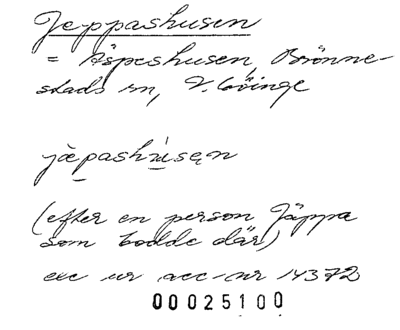 Jeppashusen
= Äspeshusen, Brönne-
stads sn, V. Göinge
jäpashùsen
(efter en person Jäppa
som bodde där)
exc ur acc-nr 14372
00025100